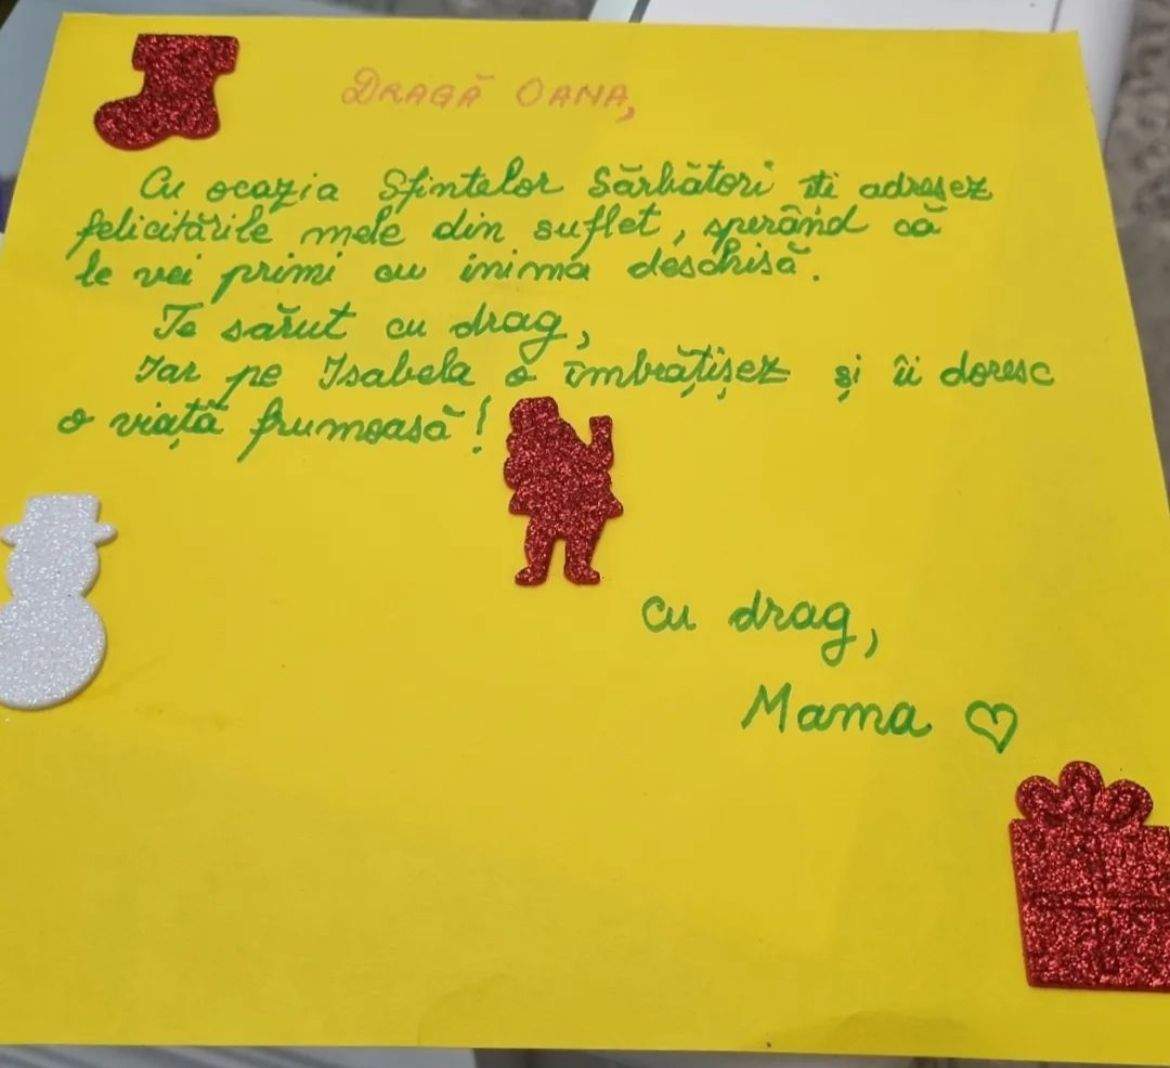 DRAGĂ OANA,
Cu ocazia Sfintelor Sărbători îți adresez
felicitările mele din suflet, sperând că
le vei primi cu inima deschisă.
Te sărut cu drag,
Iar pe Isabela o îmbrățișez și îi doresc
o viață frumoasă!
Cu drag,
Mama ♡